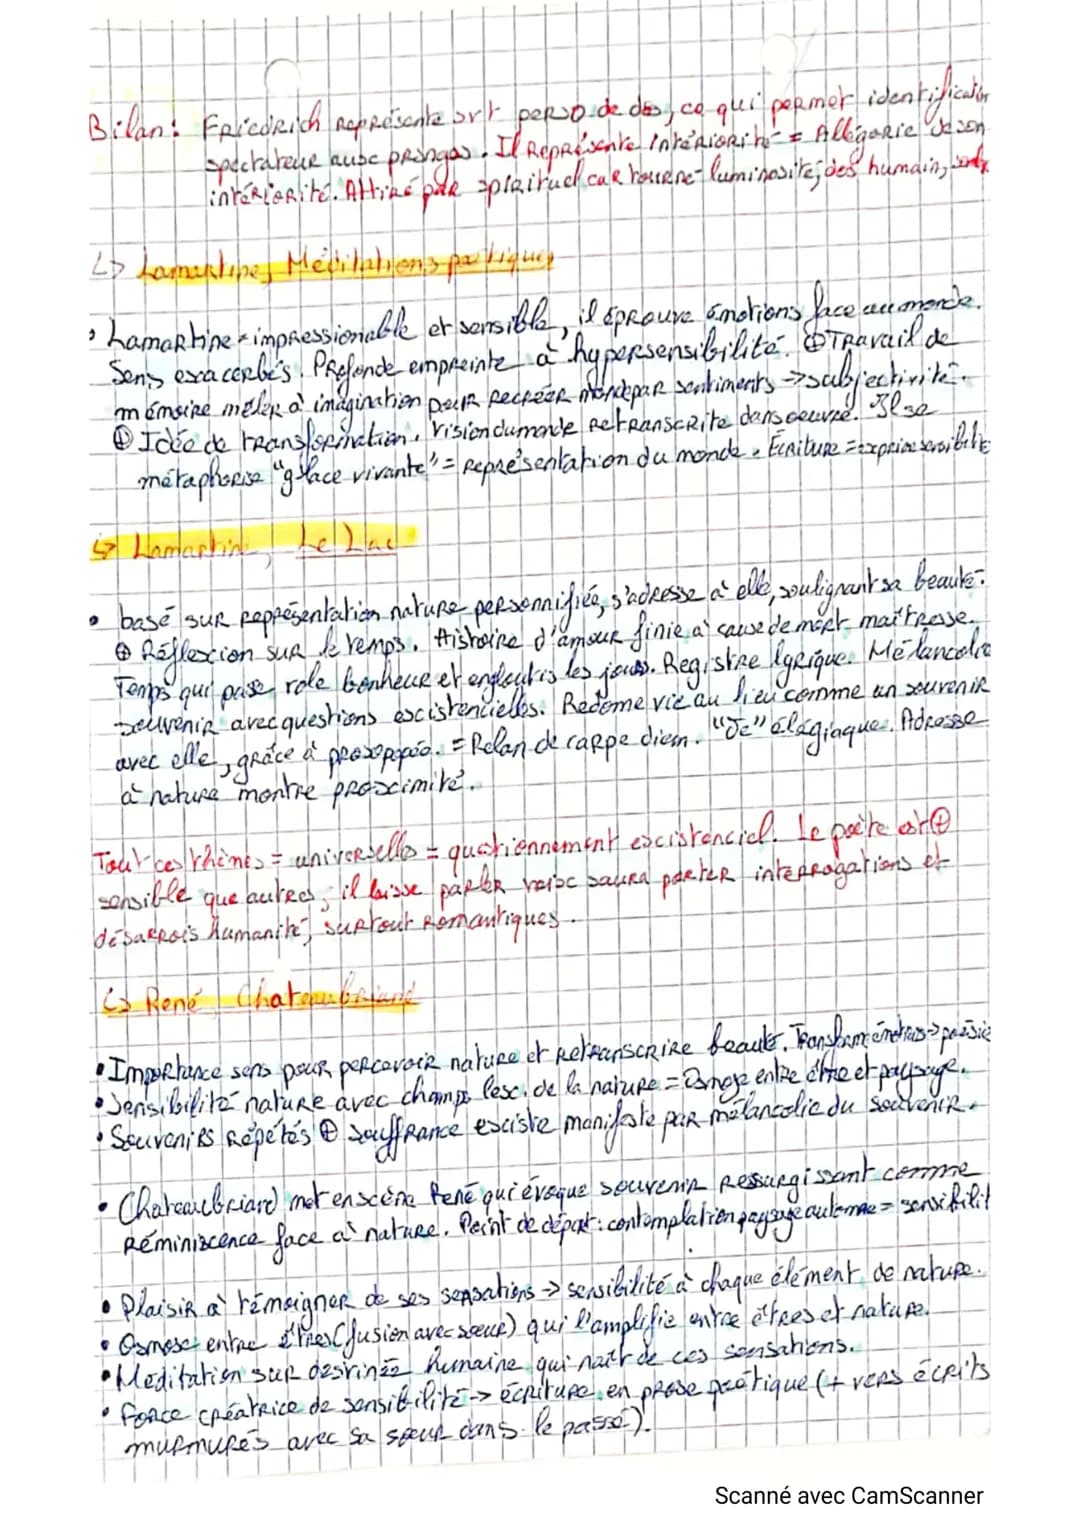 Bilan: Friedrich représente srt perso de dos, ce qui permet identification
spectateur aux prsngas. Il Représente Intériorité = Allégorie de son
intériorité. Attiré par spirituel car tourne luminosité, dos humain,
↳ Lamartine, Méditations poétiques
• Lamartine = impressionable et sensible, il éprouve émotions face au monde.
Sens exacerbés. Profonde empreinte à hypersensibilité. ⊕ Travail de
mémoire mêler à imagination pour recréer monde par sentiments → subjectivité.
⊕ Idée de transformation, vision du monde retranscrite dans oeuvre. Il se
métaphorise "glace vivante" = représentation du monde. Écriture = exprime sensibilité
↳ Lamartine, Le Lac
• basé sur représentation nature personnifiée, s'adresse à elle, soulignant sa beauté.
⊕ Réflexion sur le temps. Histoire d'amour finie à cause de mort maîtresse.
Temps qui passe, role bonheur et engloutis les jours. Registre lyrique. Mélancolie
souvenir avec questions existencielles. Redonne vie au lieu comme un souvenir
avec elle, grâce à prosopopée. = Relan de carpe diem. "Je" élégiaque. Adresse
à nature montre proximité.
Tout ces thèmes = universelles = questionnement existenciel. Le poète est ⊕
sensible que autres, il laisse parler voix saura porter interrogations et
désarrois humanité, surtout Romantiques.
↳ René, Chateaubriand
• Importance sens pour percevoir nature et retranscrire beauté. Transform émotions → poésie
• Sensibilité nature avec champs lex. de la nature = Osmose entre être et paysage.
• Souvenirs répétés ⊕ souffrance existe manifeste par mélancolie du souvenir.
• Chateaubriand met en scène René qui évoque souvenir ressurgissant comme
réminiscence face à nature. Point de départ: contemplation paysage automne = sensibilit
• Plaisir à témoigner de ses sensations → sensibilité à chaque élément de nature.
• Osmose entre êtres (fusion avec soeur) qui l'amplifie entre êtres et nature.
• Meditation sur destinée humaine qui naît de ces sensations.
• Force créatrice de sensibilité → écriture en prose poétique (+ vers écrits
murmurés avec sa soeur dans le passé).
Scanné avec CamScanner